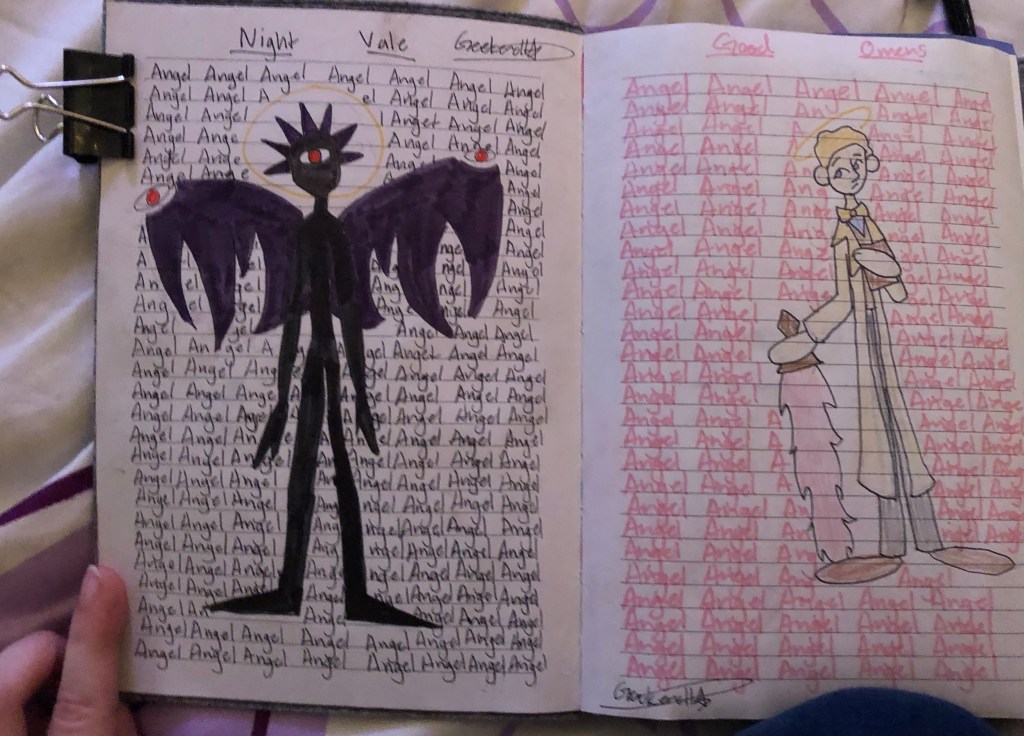 Night Vale
Angel Angel Angel Angel Angel Angel Angel
Angel Angel A el Angel Angel Angel
Angel Angel l Angel Angel Angel
Angel Ange Angel Angel
Angel Ange Ang Angel
Angel Ange Angel
Angel
Angel
Angel
A nge Angel
A Angel
An el Angel
Ang el Angel
Angel Angel Angel Angel
Angel Angel A Angel Angel Angel Angel
Angel Angel Ang Angel Angel Angel
Angel Angel Ange Angel Angel Angel
Angel Angel Angel Angel Angel Angel
Angel Angel An Angel Angel Angel
Angel Angel Angel Angel Angel Angel
Angel Angel Angel Angel Angel Angel
Angel Angel Angel Angel Angel Angel
Angel Angel Angel Ang Angel Angel Angel
Angel Angel Angel Ang ngel Angel Angel Angel
Angel Angel Angel Ang ngel Angel Angel Angel
Angel Angel Angel Angel Angel Angel
Angel A Angel Angel Angel
Angel Angel Angel Angel Angel Angel Angel Angel
Angel Angel Angel Angel Angel Angel Angel Angel
Good Omens
Angel Angel Angel Angel Ange
Angel Angel Ange Angel Angel
Angel Angel Ang Angel Angel
Angel Angel Ang Angel Angel
Angel Angel Ange Angel Angel
Angel Angel Ange Angel Angel
Angel Angel Ang Angel Angel
Angel Angel Ang Angel Angel
Angel Angel Ange Angel Angel
Angel Angel Ang Angel Angel
Angel Angel Ang Angel Angel
Angel Angel Angel Angel
Angel Angel Angel Angel
Angel Angel Angel Angel
Angel Angel A Angel Ange
Angel Angel A Angel Ange
Angel Angel A Angel Ange
Angel Angel A Angel Ange
Angel Angel A Angel Ange
Angel Angel An Angel Ange
Angel Angel An Angel Ange
Angel Angel An Angel
Angel Angel Angel Angel Angel
Angel Angel Angel Angel Angel
Angel Angel Angel Angel Ange
Angel Angel Angel Angel Ange